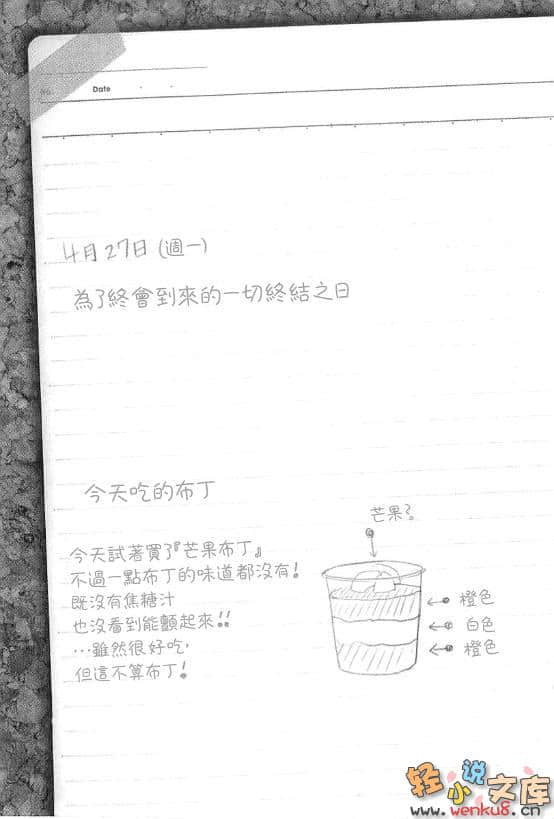 No.
Date
4月27日(週一)
為了終會到來的一切終結之日
今天吃的布丁
芒果?
今天試著買了『芒果布丁』
不過一點布丁的味道都沒有!
既沒有焦糖汁
也沒看到能顫起來!!
…雖然很好吃,
但這不算布丁!
橙色
白色
橙色
轻小说文库
www.wenku8.cn